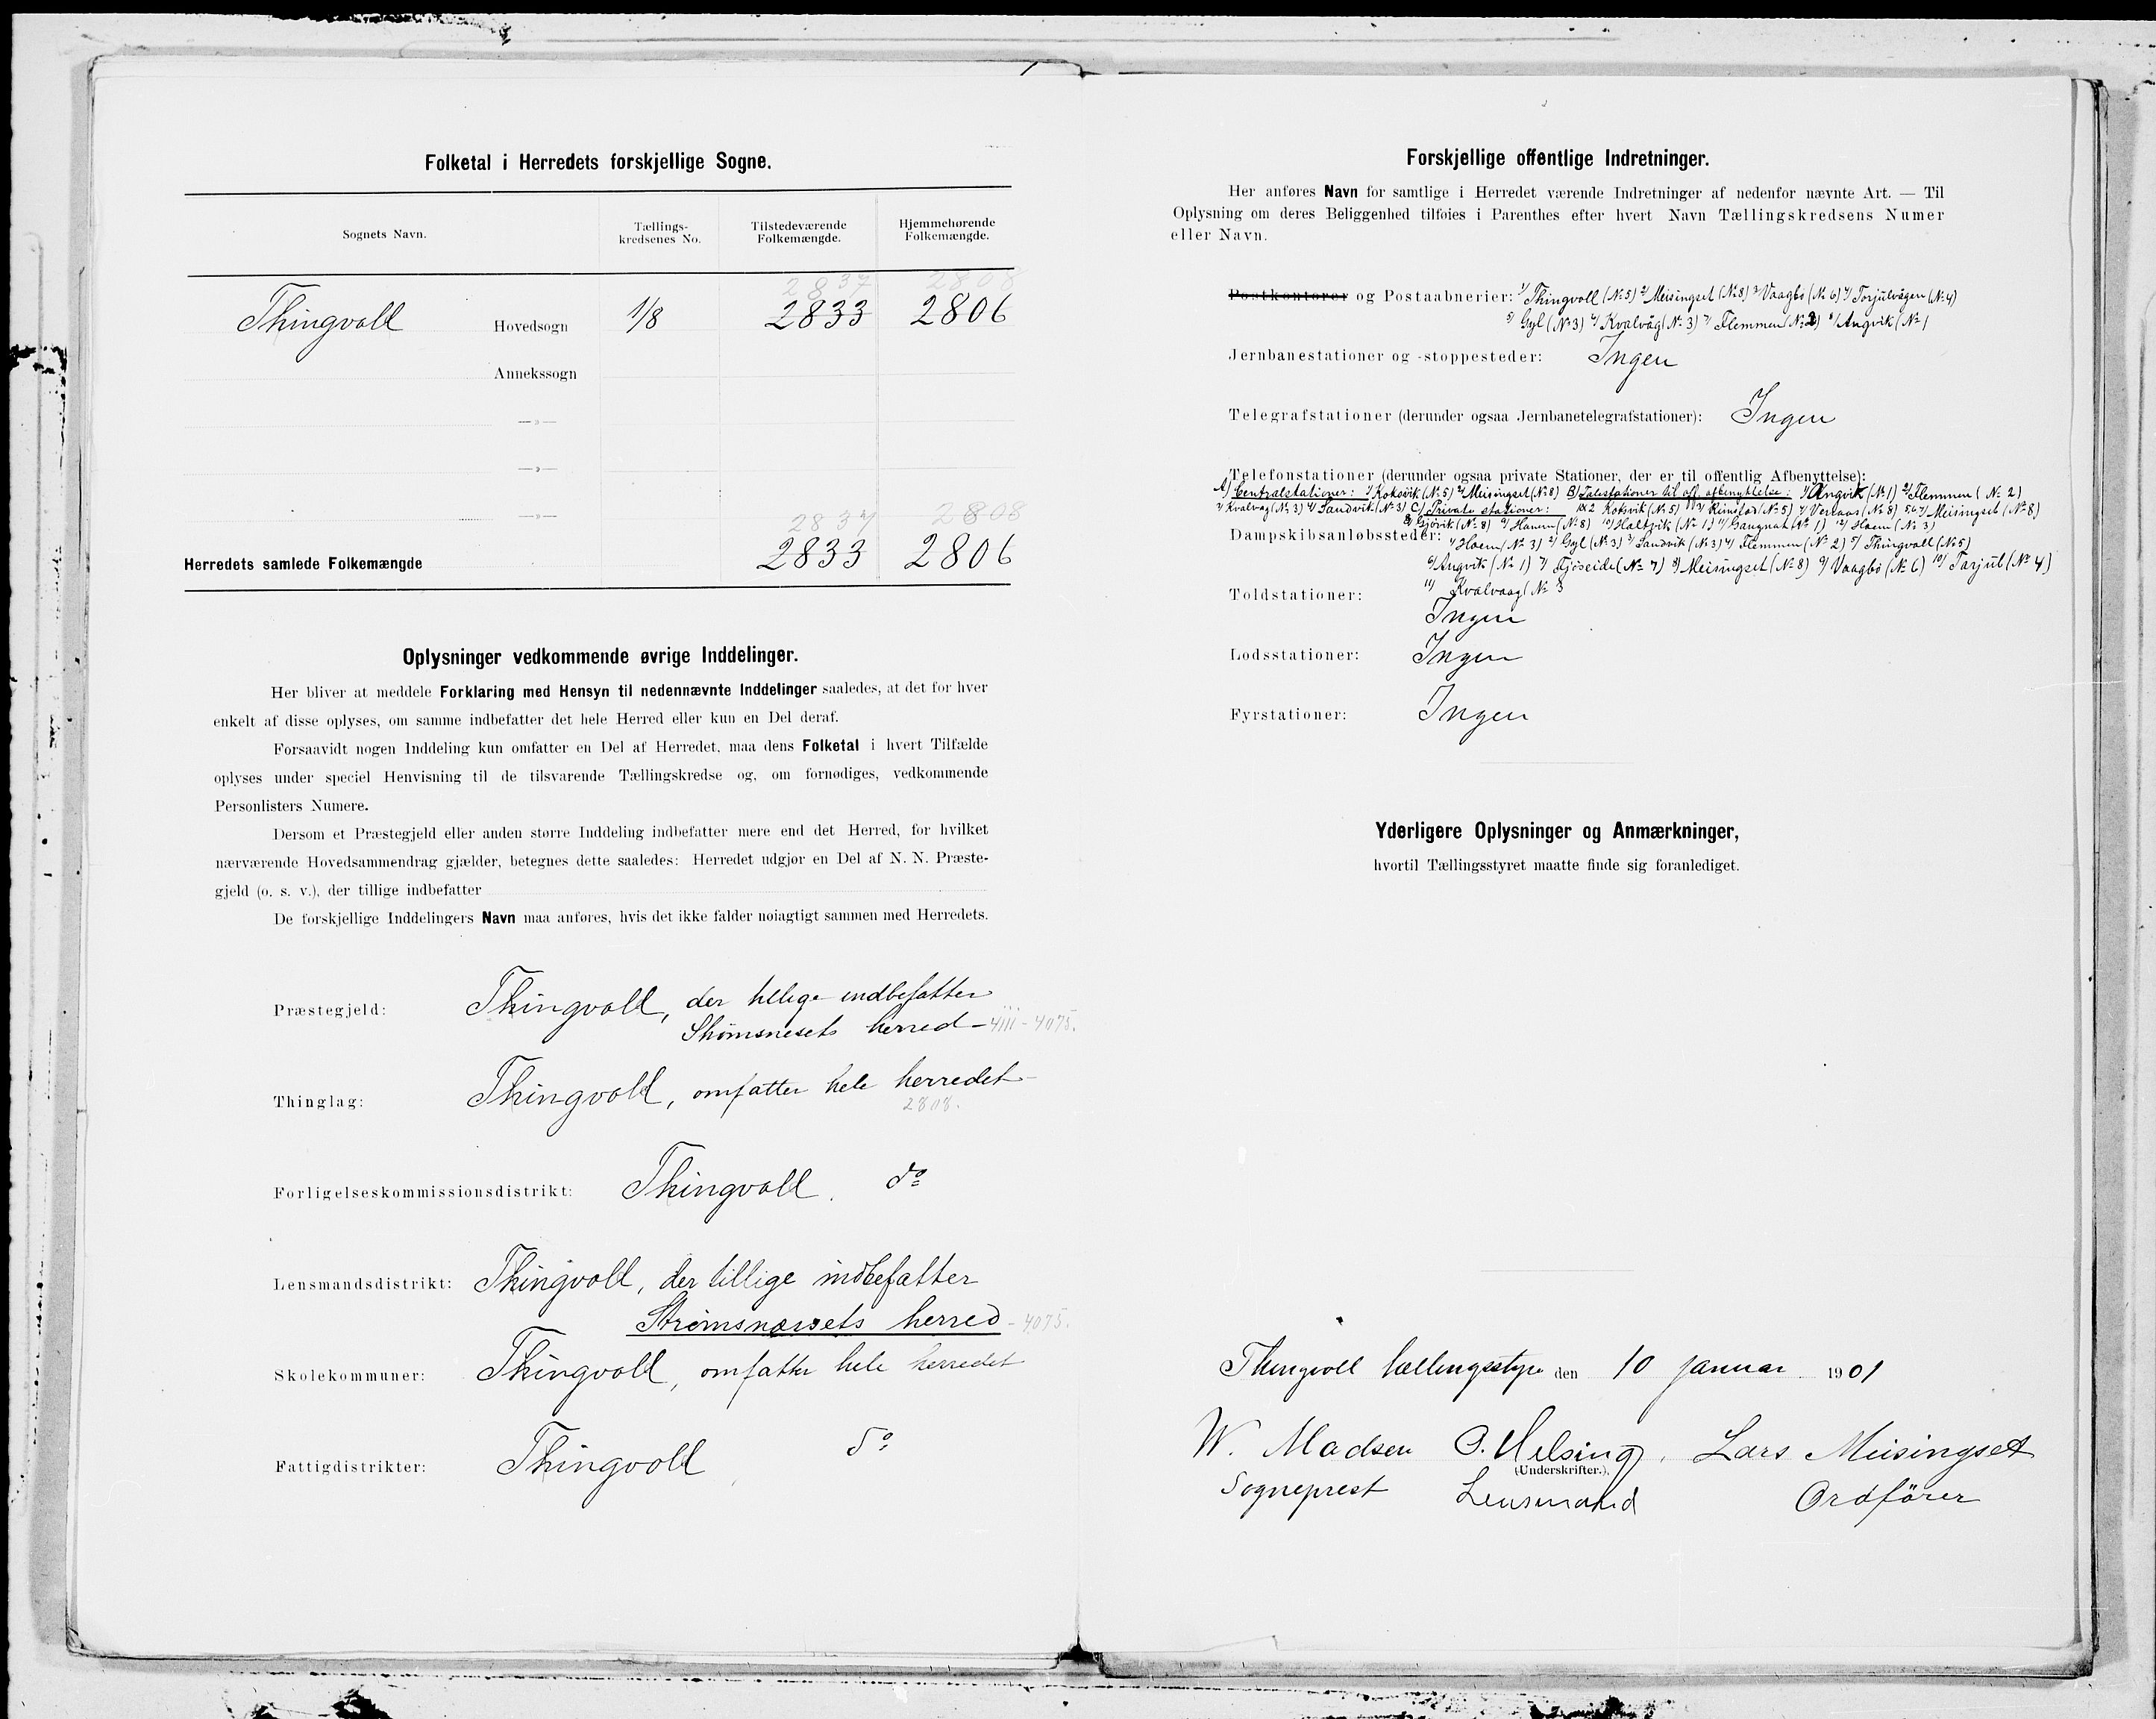 Folketal i Herredets forskjellige Sogne.
Sognets Navn. Tællings-kredsenes No. Tilstedeværende Folkemængde. Hjemmehørende Folkemængde.
2837 2808
Thingvoll Hovedsogn 1/8 2833 2806
Annekssogn
—»—
—»—
—»— 2837 2808
Herredets samlede Folkemængde 2833 2806
Oplysninger vedkommende øvrige Inddelinger.
Her bliver at meddele Forklaring med Hensyn til nedennævnte Inddelinger saaledes, at det for hver
enkelt af disse oplyses, om samme indbefatter det hele Herred eller kun en Del deraf.
Forsaavidt nogen Inddeling kun omfatter en Del af Herredet, maa dens Folketal i hvert Tilfælde
oplyses under speciel Henvisning til de tilsvarende Tællingskredse og, om fornødiges, vedkommende
Personlisters Numere.
Dersom et Præstegjeld eller anden større Inddeling indbefatter mere end det Herred, for hvilket
nærværende Hovedsammendrag gjælder, betegnes dette saaledes: Herredet udgjør en Del af N. N. Præste-
gjeld (o. s. v.), der tillige indbefatter
De forskjellige Inddelingers Navn maa anføres, hvis det ikke falder nøiagtigt sammen med Herredets.
Præstegjeld: Thingvoll, der tillige indbefatter
Strømsnesets herred - 4111 - 4075.
Thinglag: Thingvoll, omfatter hele herredet
2808.
Forligelseskommissionsdistrikt: Thingvoll. do
Lensmandsdistrikt: Thingvoll, der tillige indbefatter
Strømsnæssets herred - 4075.
Skolekommuner: Thingvoll, omfatter hele herredet
Fattigdistrikter: Thingvoll do
Forskjellige offentlige Indretninger.
Her anføres Navn for samtlige i Herredet værende Indretninger af nedenfor nævnte Art. — Til
Oplysning om deres Beliggenhed tilføies i Parenthes efter hvert Navn Tællingskredsens Numer
eller Navn.
Postkontorer og Postaabnerier: 1/ Thingvoll (No 5) 2/ Meisingset (No 8) 3/ Vaagbö (No 6) 4/ Torjulvågen (No 4)
5/ Gyl (No 3) 6/ Kvalvåg (No 3) 7/ Flemmen (No 2) 8/ Angvik (No 1
Jernbanestationer og -stoppesteder: Ingen
Telegrafstationer (derunder ogsaa Jernbanetelegrafstationer): Ingen
Telefonstationer (derunder ogsaa private Stationer, der er til offentlig Afbenyttelse):
A) Centralstationer: 1/ Koksvik (No 5) 2/ Meisingset (No 8) B) Talestationer til off. afbenyttelse: 1/ Angvik (No 1) 2/ Flemmen (No 2)
3/ Kvalvåg (No 3) 4/ Sandvik (No 3) C) Private stationer: 1 & 2 Koksvik (No 5) (No 5) (No 8) 5 6 7/ Meisingset (No 8)
8/ Gjörvik (No 8) 9/ Hanem (No 8) 10/ Holtvik (No 1) 11/ (No 1) 12/ Hoem (No 3)
Dampskibsanløbssteder: 1/ Hoem (No 3) 2/ Gyl (No 3) 3/ Sandvik (No 3) 4/ Flemmen (No 2) 5/ Thingvoll (No 5)
6/ Angvik (No 1) 7/ Fjöseide (No 7) 8/ Meisingset (No 8) 9/ Vaagbö (No 6) 10/ Torjul (No 4)
11/ Kvalvaag (No 3
Toldstationer: Ingen
Lodsstationer: Ingen
Fyrstationer: Ingen
Yderligere Oplysninger og Anmærkninger,
hvortil Tællingsstyret maatte finde sig foranlediget.
Thingvoll tællingsstyre den 10 januar 1901
W. Madsen O. Helsing, Lars Meisingset
(Underskrifter.)
Sogneprest Lensmand Ordfører